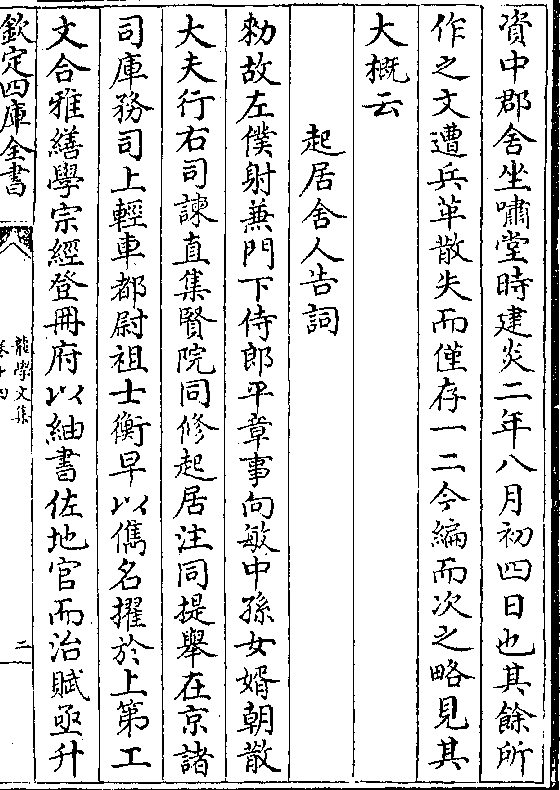 資中郡舍坐嘯堂時建炎二年八月初四日也其餘所
作之文遭兵革散失而僅存一二今編而次之略見其
大概云
起居舍人告詞
勑故左僕射兼門下侍郎平章事向敏中孫女婿朝散
大夫行右司諫直集賢院同修起居注同提舉在京諸
司庫務司上輕車都尉祖士衡早以儁名擢於上第工
文合雅繕學宗經登冊府以紬書佐地官而治賦亟升
欽定四庫全書
龍學文集
卷十四
二